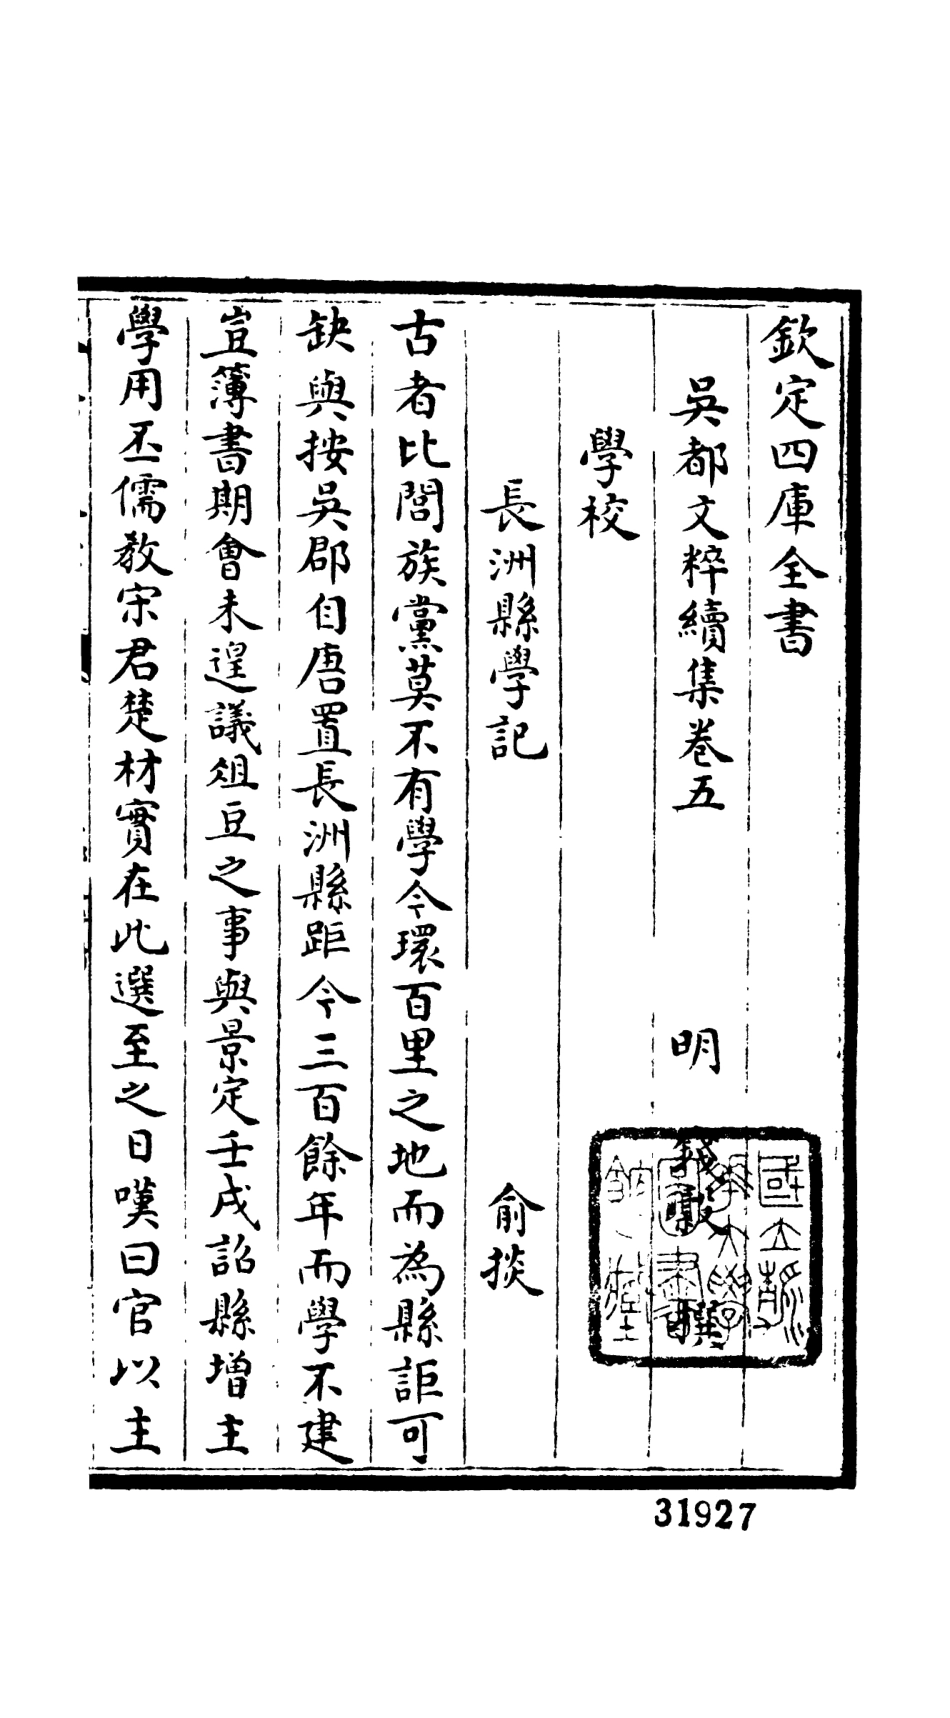 欽定四庫全書
吳都文粹續集卷五
明 錢榖 撰
學校
長洲縣學記 俞掞
古者比閭族黨莫不有學今環百里之地而為縣詎可
缺與按吳郡自唐置長洲縣距今三百餘年而學不建
豈簿書期會未遑議俎豆之事與景定壬戌詔縣增主
學用丕儒教宋君楚材實在此選至之日嘆曰官以主
31927